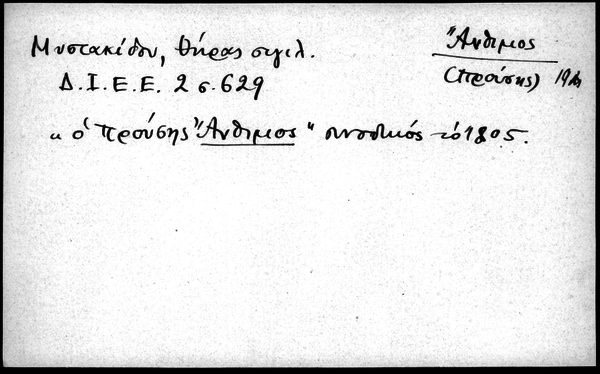 Μυστακίδου, Θήρας σιγιλ.
Δ.Ι.Ε.Ε. 2 σ. 629
Ἄνθιμος
(Προύσης) 19
"ὁ Προύσης Ἄνθιμος" συνοδικός τὸ 1805.